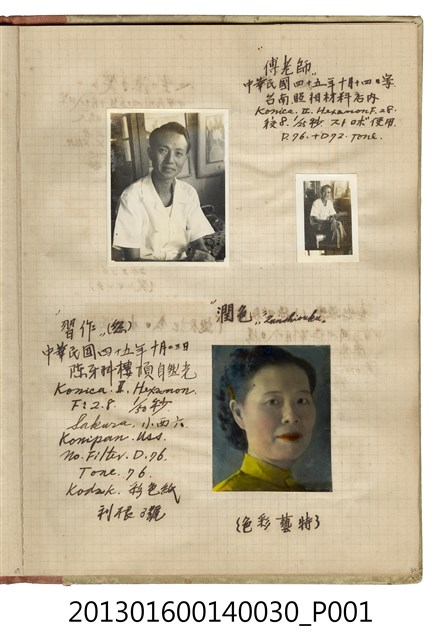 "傅老師"
中華民國四十五年十月十四日 寫
台南.照相材料店内
Konica.Ⅱ.Hexanon.F.2.8.
絞8. 1/50秒 ストロボ使用.
D.76.+D72. Tone.
"潤色"
"習作"
中華民國四十五年十月三日
陳牙科樓頂自然光
Konica.Ⅱ.Hexanon.
F:2.8. 1/50秒
Sakura.小西六
Konipan.USSS.
No.Filter.D.76.
Tone.76.
Kodak.彩色紙
利根3號
(色彩藝特)
201301600140030_P001